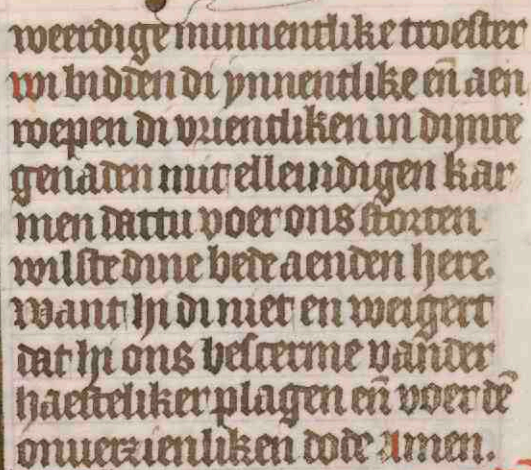 weerdige minnentlike troester
wi bidden di ynnentlike en̄ aen
roepen di vrientliken in dijnre
genaden mit elleindigen kar
men dattu voer ons storten
wilste dine bede aen den here.
Want hi di niet en weigert
dat hi ons bescerme vander
haesteliker plagen en̄ voer dē
onuerzienliken dode Amen.